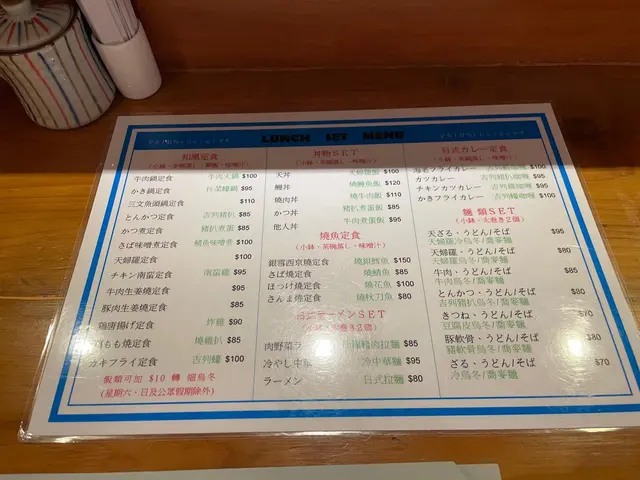 LUNCH SET MENU
和風定食
牛肉鍋定食 牛肉火鍋 $100
かき鍋定食 $95
三文魚頭鍋定食 $110
とんかつ定食 吉列豬扒 $85
かつ煮定食 豬扒煮蛋 $85
さば味噌煮定食 鯖魚味噌煮 $100
天婦羅定食 $100
チキン南蛮定食 南蛮雞 $95
牛肉生姜燒定食 $95
豚肉生姜燒定食 $85
鶏唐揚げ定食 炸雞 $90
鶏もも燒定食 燒雞扒 $85
カキフライ定食 吉列蠔 $100
飯類可加 $10 轉 細烏冬
(星期六、日及公眾假期除外)
丼物SET
(小鉢・茶碗蒸し・味噌汁)
天丼 天婦羅飯 $100
鰻丼 燒鰻魚飯 $120
燒肉丼 燒牛肉飯 $110
かつ丼 豬扒煮蛋飯 $85
他人丼 牛肉煮蛋飯 $95
燒魚定食
(小鉢・茶碗蒸し・味噌汁)
銀雪西京燒定食 燒銀鱈魚 $150
さば燒定食 燒鯖魚 $85
ほっけ燒定食 燒花魚 $100
さんま燒定食 燒秋刀魚 $80
ラーメンSET
肉野菜ラ $85
冷やし中華 冷中華麵 $95
ラーメン 日式拉麵 $80
日式カレー定食
(小鉢・茶碗蒸し・味噌汁)
海老フライカレー $100
カツカレー 吉列豬扒咖喱 $95
チキンカツカレー 吉列雞扒咖喱 $95
かきフライカレー 吉列蠔咖喱 $100
麵類SET
(小鉢・太巻き2個)
天ざる・うどん/そば $95
天婦羅冷烏冬/蕎麥麵
天婦羅・うどん/そば $80
天婦羅烏冬/蕎麥麵
牛肉・うどん/そば $85
牛肉烏冬/蕎麥麵
とんかつ・うどん/そば $80
吉列豬扒烏冬/蕎麥麵
きつね・うどん/そば $70
豆腐皮烏冬/蕎麥麵
豚軟骨・うどん/そば $80
豬軟骨烏冬/蕎麥麵
ざる・うどん/そば $70
冷烏冬/蕎麥麵